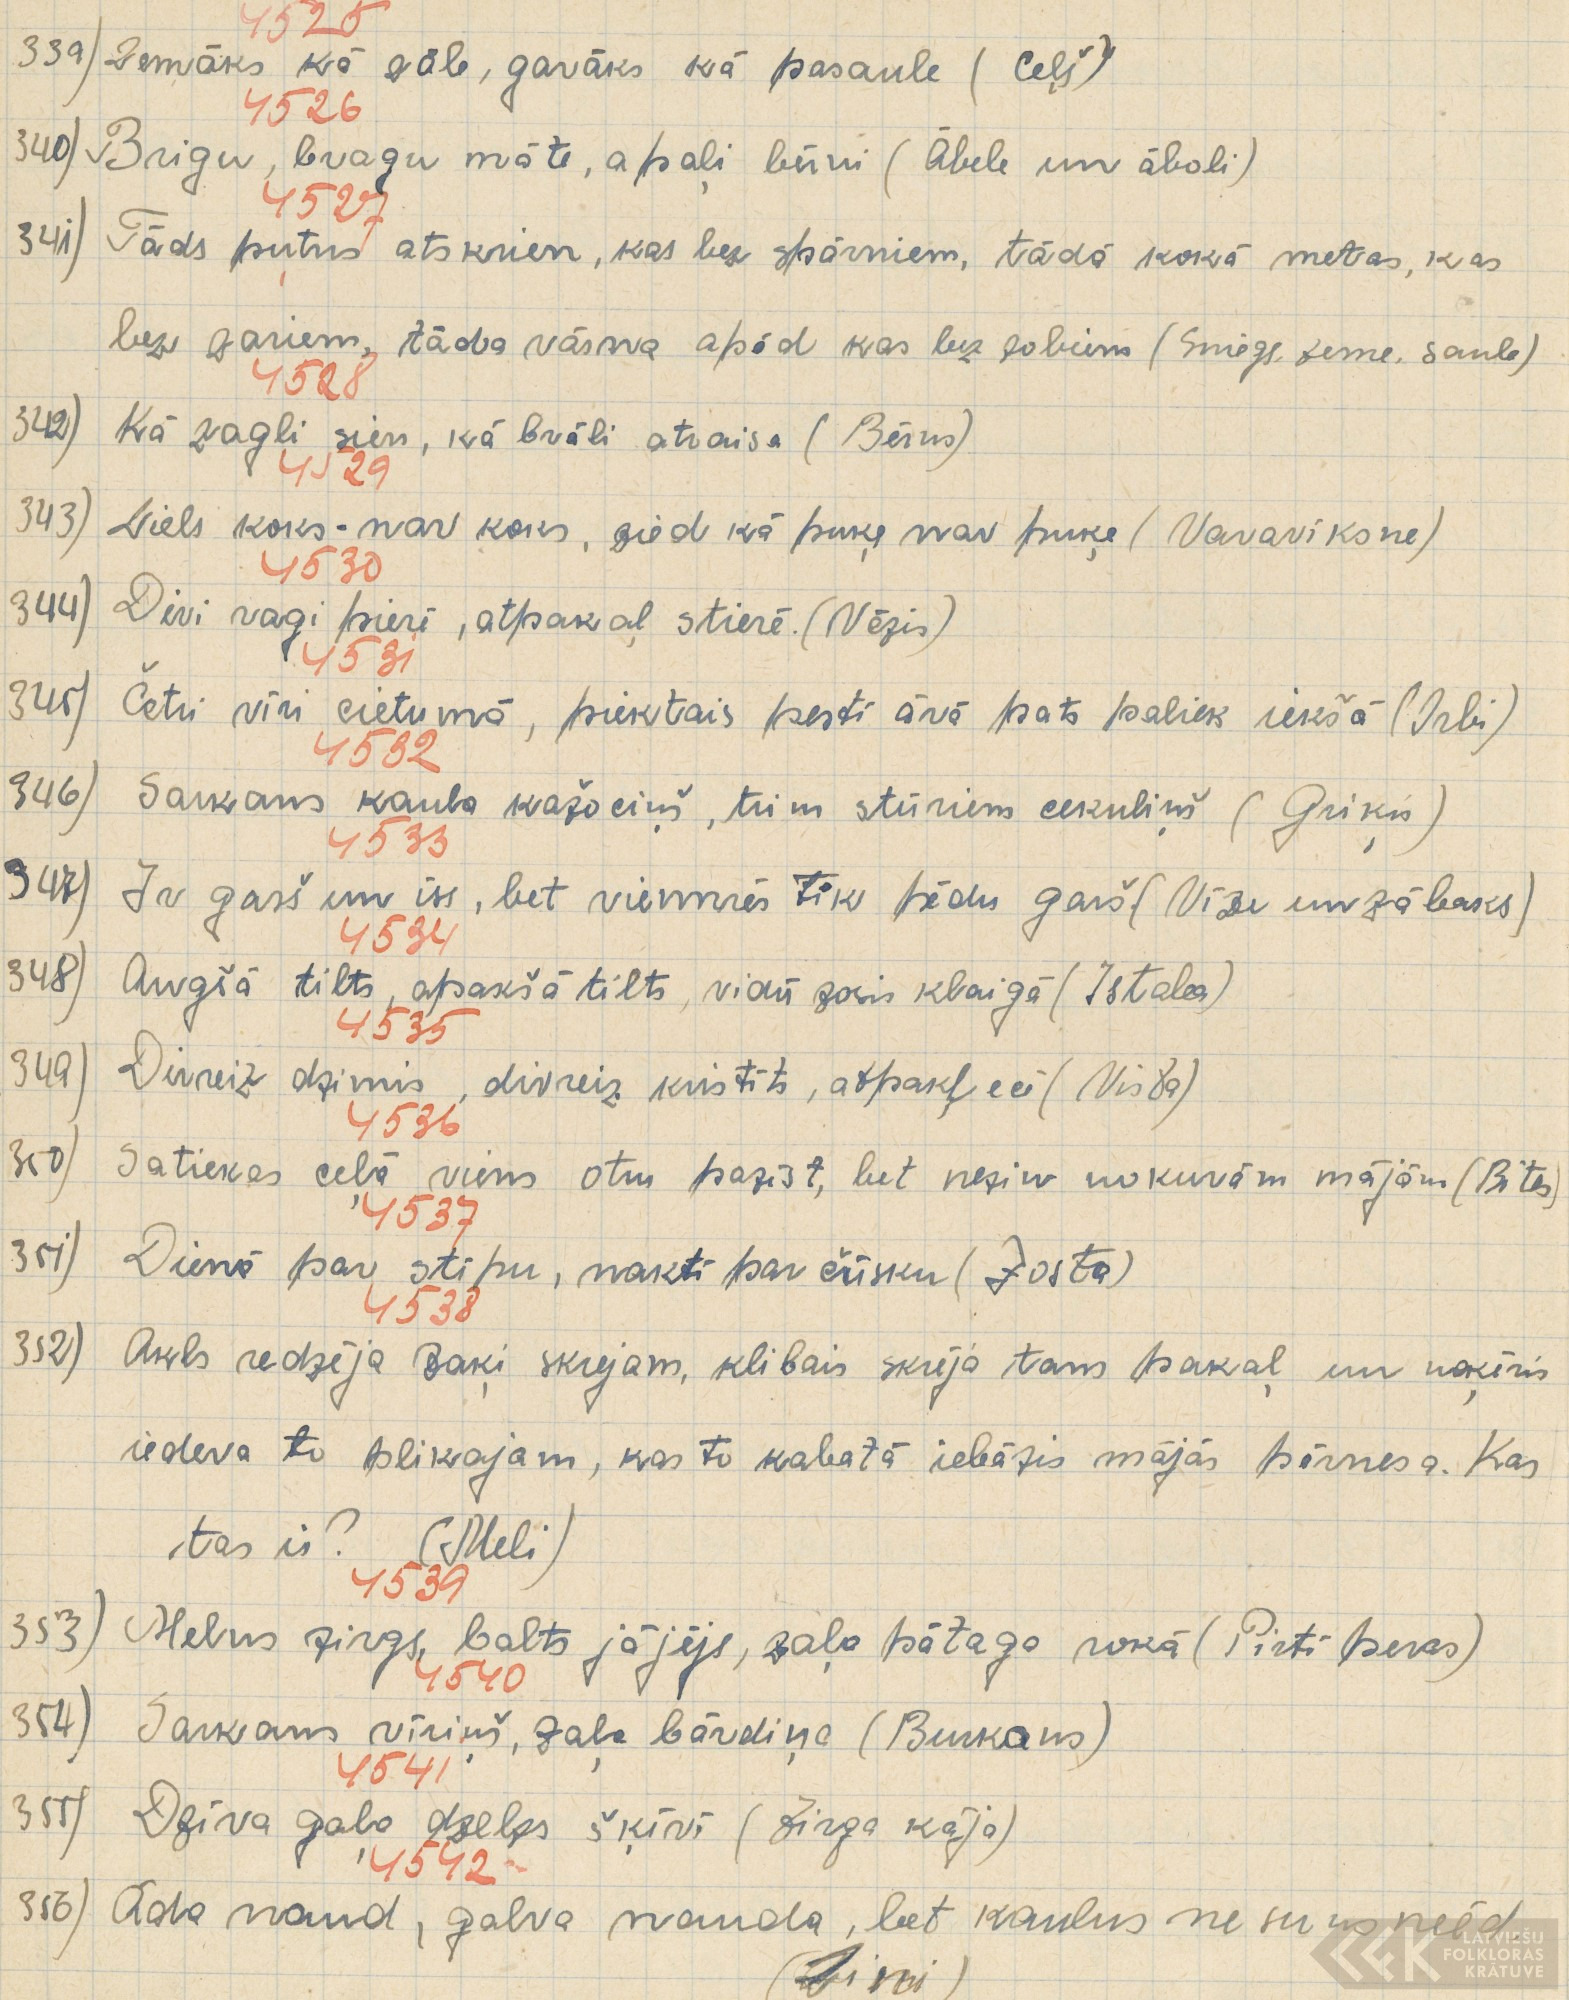 4525
339) Zemāks kā zāle, garāks kā pasaule (Ceļš)
4526
340) Brigu, bragu māte, apaļi bērni (Ābele un āboli)
4527
341) Tāds putns atskrien, kas bez spārniem, tādā kokā metas, kas
bez zariem, tāda vāsna apēd kas bez zobiem (Sniegs, zeme, saule)
4528
342) Kā zagli sien, kā brāli atraisa (Bērns)
4529
343) Liels koks - nav koks, zied kā puķe nav puķe (Varavīksne)
4530
344) Divi ragi pierē, atpakaļ stierē. (Vēzis)
4531
345) Četri vīri cietumā, piektais pestī ārā pats paliek iekšā (Irbi)
4532
346) Sarkans kaula kažociņš, trim stūriem cekuliņš (Griķis)
4533
347) Ir garš un īss, bet vienmēs tik pēdu garš (Vīze un zābaks)
4534
348) Augšā tilts, apakšā tilts, vidū zosis klaigā (Istaba)
4535
349) Divreiz dzimis, divreiz kristīts, atpakļ eė (Vista)
4536
350) Satiekas ceļā viens otru pazīst, bet nezin nokurām mājām (Bites)
4537
351) Dienā par stīpu, naktī par čūsku (Josta)
4538
352) Akls redzēja zaķi skrejam, klibais skrēja tam pakaļ un noķēris
iedeva to plikajam, kas to kabatā iebāzis mājās pārnesa. Kas
tas ir? (Meli)
4539
353) Melns zirgs, balts jājējs, zaļa pātaga rokā (Pirtī peras)
4540
354) Sarkans vīriņš, zaļa bārdiņa (Burkans)
4541
355) Dzīva gaļa dzelzs šķīvī (Zirga kāja)
4542
356) Āda naud, galva nauda, bet kaulus ne suns neēd.
(Lini)
LATVIEŠU
FOLKLORAS
KRĀTUVE